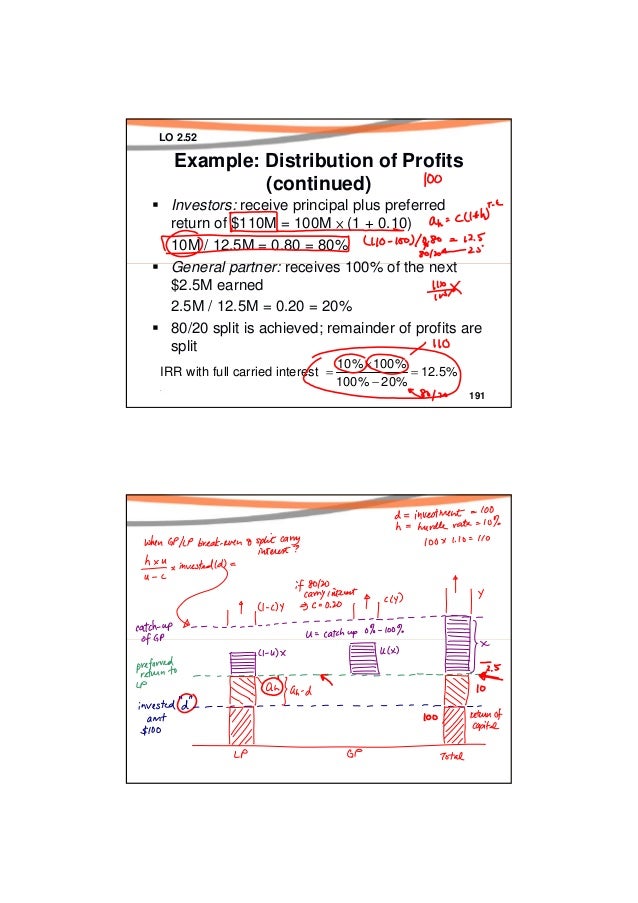 LO 2.52
Example: Distribution of Profits
(continued)
100
▪ Investors: receive principal plus preferred
return of $110M = 100M × (1 + 0.10)
10M / 12.5M = 0.80 = 80%
(110-100)/0.80 = 12.5
80/20
▪ General partner: receives 100% of the next
$2.5M earned
2.5M / 12.5M = 0.20 = 20%
▪ 80/20 split is achieved; remainder of profits are
split
110
IRR with full carried interest = 10% × 100% / 100% − 20% = 12.5%
80/20
191
d = investment = 100
h = hurdle rate = 10%
100 x 1.10 = 110
when GP/LP break-even & split carry
interest?
h x u / u - c x invested(d) =
if 80/20
carry interest
⇒ c = 0.20
(1-c)y
c(y)
y
catch-up
of GP
u = catch up 0% - 100%
(1-u)x
u(x)
x
preferred
return to
LP
2.5
ah
ah-d
10
invested "d"
amt
$100
100
return of
capital
LP
GP
Total